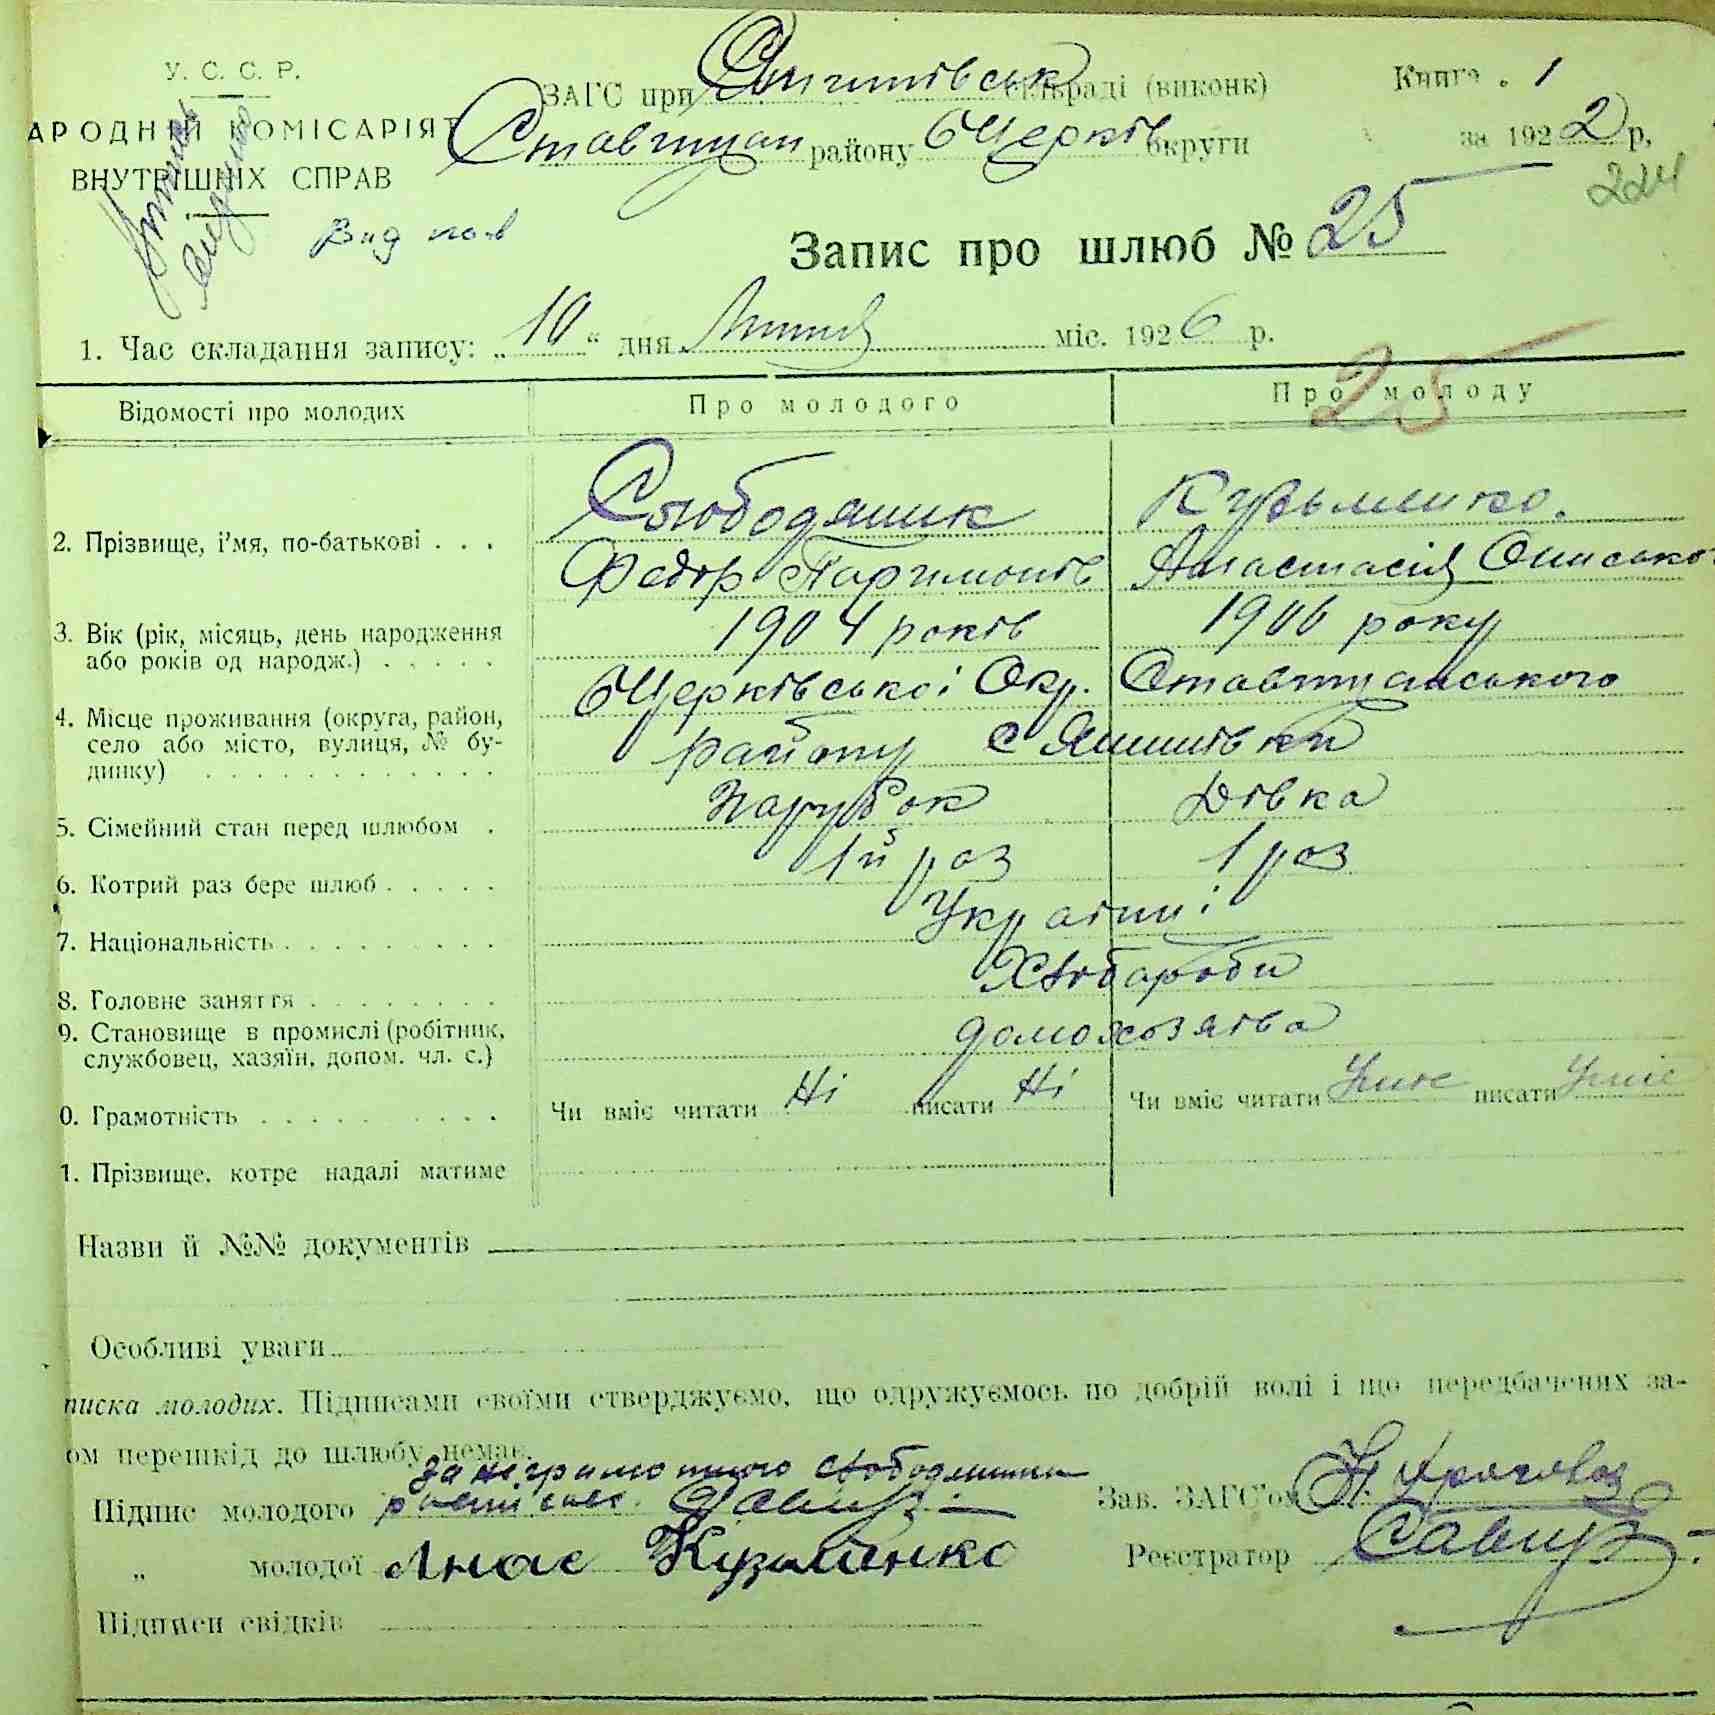 У. С. С. Р.
АРОДНІЙ КОМІСАРІЯТ
ВНУТРІШНІХ СПРАВ
Вид
ЗАГС при сільраді (виконк)
району БЦерків округи
Книга 1
за 1922 р,
224
Запис про шлюб № 25
1. Час складання запису: „10“ дня Липня міс. 1926 р.
25
Відомості про молодих Про молодого Про молоду
2. Прізвище, і'мя, по-батькові . . . Слободяник Кузьменко.
Федор Паримонів Анастасія
3. Вік (рік, місяць, день народження або років од народж.) . . . . . 1904 років 1906 року
4. Місце проживання (округа, район, село або місто, вулиця, № будинку) . . . . . . . . . . . . БЦерківської Окр. Ставищанського
району с Янишівки
5. Сімейний стан перед шлюбом . Парубок Дівка
6. Котрий раз бере шлюб . . . . . 1й раз 1 раз
7. Національність . . . . . . . . . Україн.
8. Головне заняття . . . . . . . . Хлібароби
9. Становище в промислі (робітник, службовец, хазяїн, допом. чл. с.) домохозяіва
0. Грамотність . . . . . . . . . . Чи вміє читати Ні писати Ні Чи вміє читати Уміє писати Уміє
1. Прізвище, котре надалі матиме
Назви й №№ документів
Особливі уваги
писка молодих. Підписами своїми стверджуємо, що одружуємось по добрій волі і що передбачених за-
ом перешкід до шлюбу немає.
за неграмотного Слободяника
Підпис молодого Зав. ЗАГС'ом
„ молодої Анас Кузменко Реєстратор
Підписи свідків